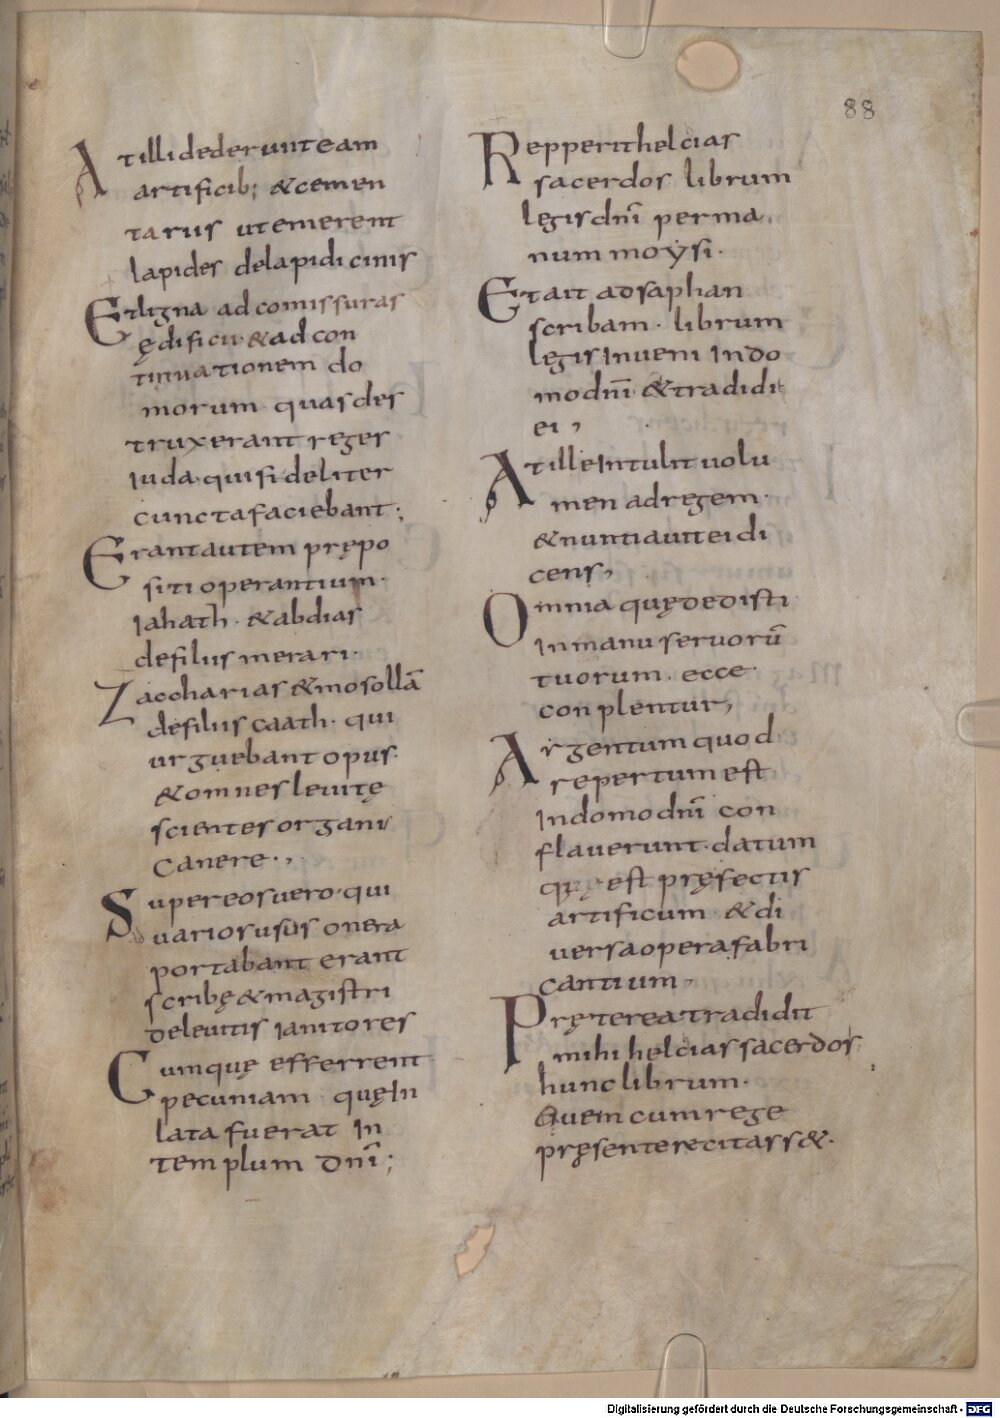 88
At illi dederunt eam
artificib; & cemen
tariis ut emerent
lapides delapidicinis
Et ligna ad comissuras
ędificii & ad con
tinuationem do
morum quas des
truxerant reges
iuda quisi deliter
cuncta faciebant;
Erant autem prępo
siti operantium.
Iahath . & abdias
defiliis merari.
Zaccharias & mosollā
defiliis caath . qui
urguebant opus.
& omnes leuitę
scientes organis
canere.,
Super eos uero qui
uarios usus onera
portabant erant
scribę & magistri
deleuitis ianitores
Cumquę efferrent
pecuniam quę in
lata fuerat in
templum dn̄i;
Repperit helcias
sacerdos librum
legis dn̄i per ma
num moysi.
Et ait ad saphan
scribam . librum
legis inueni in do
mo dn̄i & tradidit
ei,
At ille intulit uolu
men ad regem.
& nuntiauit ei di
cens,
Omnia quę dedisti
in manu seruorū
tuorum . ecce
conplentur,
Argentum quod
repertum est
in domo dn̄i con
flauerunt . datum
quę est pręfectis
artificum & di
uersa opera fabri
cantium,
Pręterea tradidit
mihi helcias sacerdos
hunc librum.
Quem cum rege
pręsente recitass&.
Digitalisierung gefördert durch die Deutsche Forschungsgemeinschaft - DFG